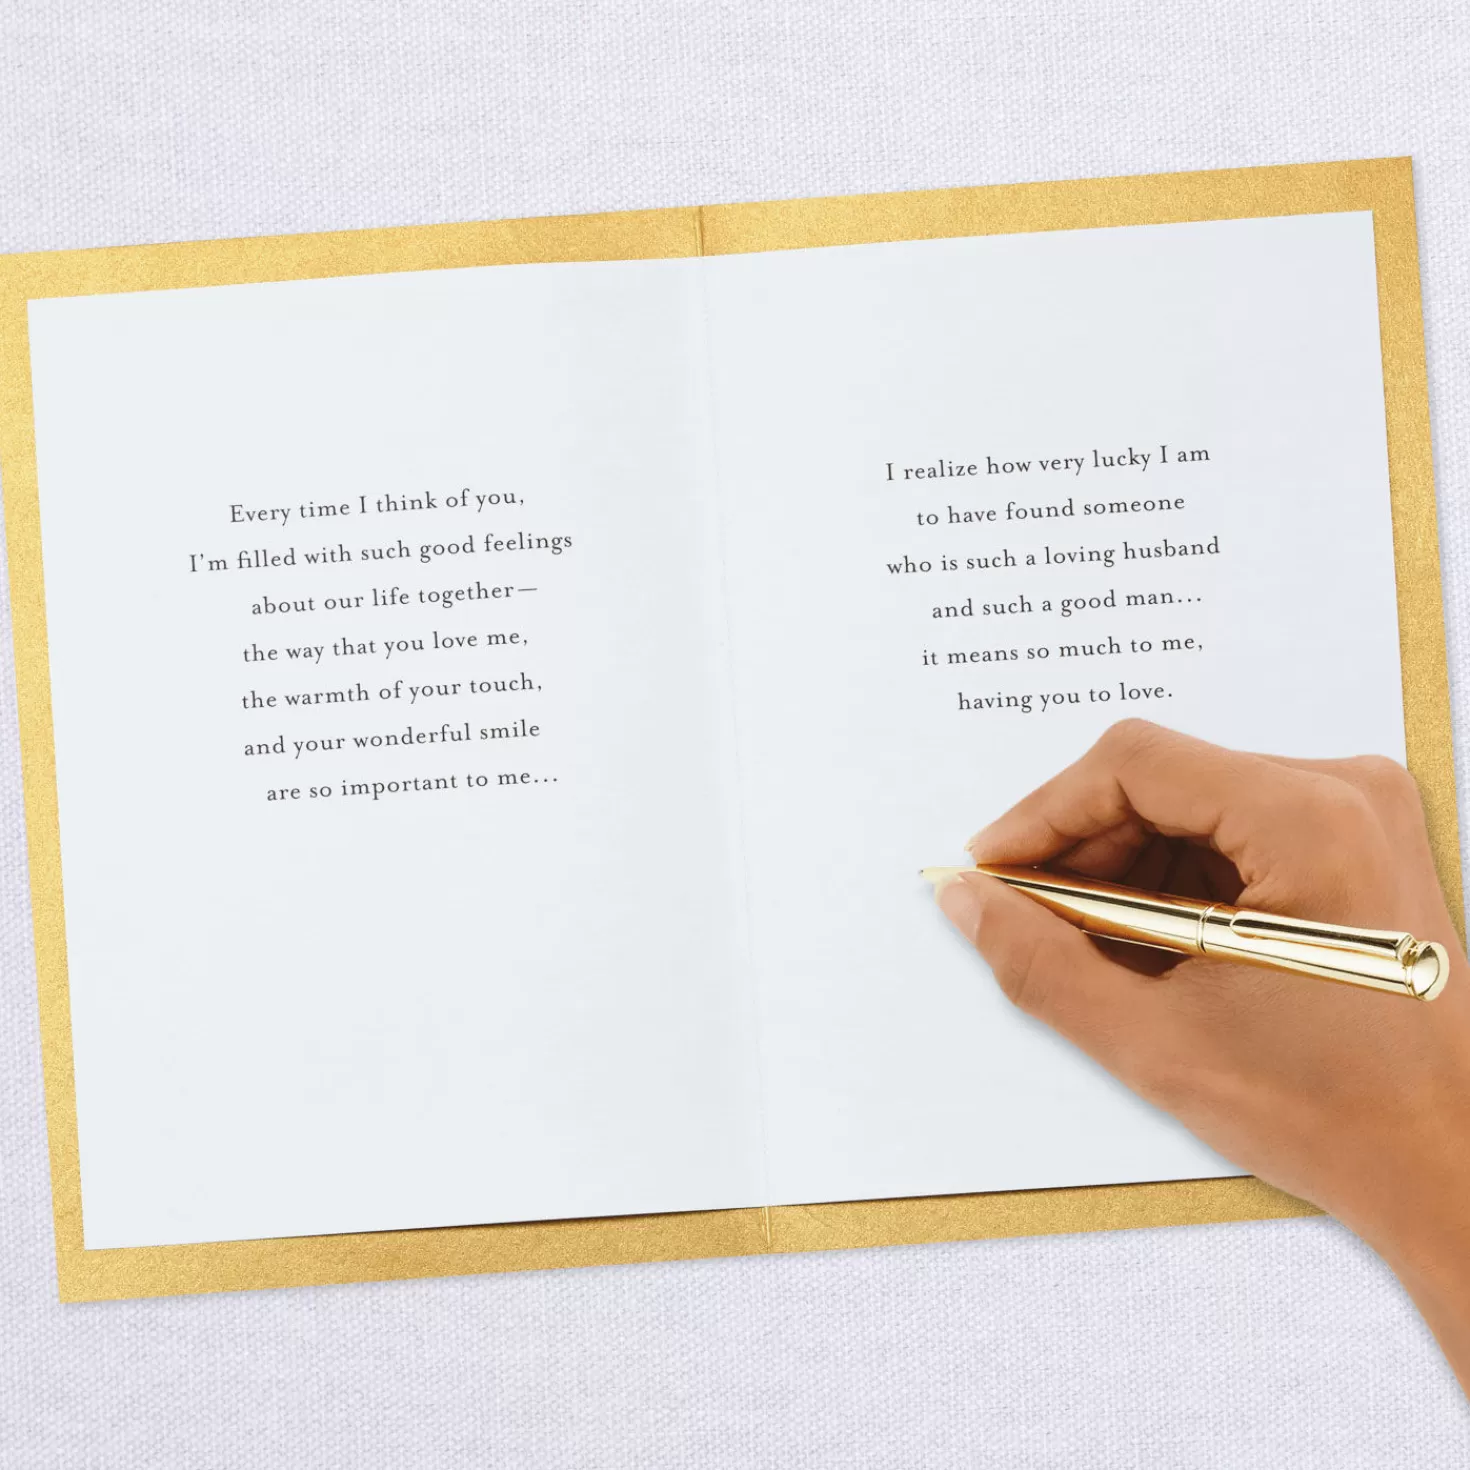 Every time I think of you,
I'm filled with such good feelings
about our life together—
the way that you love me,
the warmth of your touch,
and your wonderful smile
are so important to me...
I realize how very lucky I am
to have found someone
who is such a loving husband
and such a good man...
it means so much to me,
having you to love.